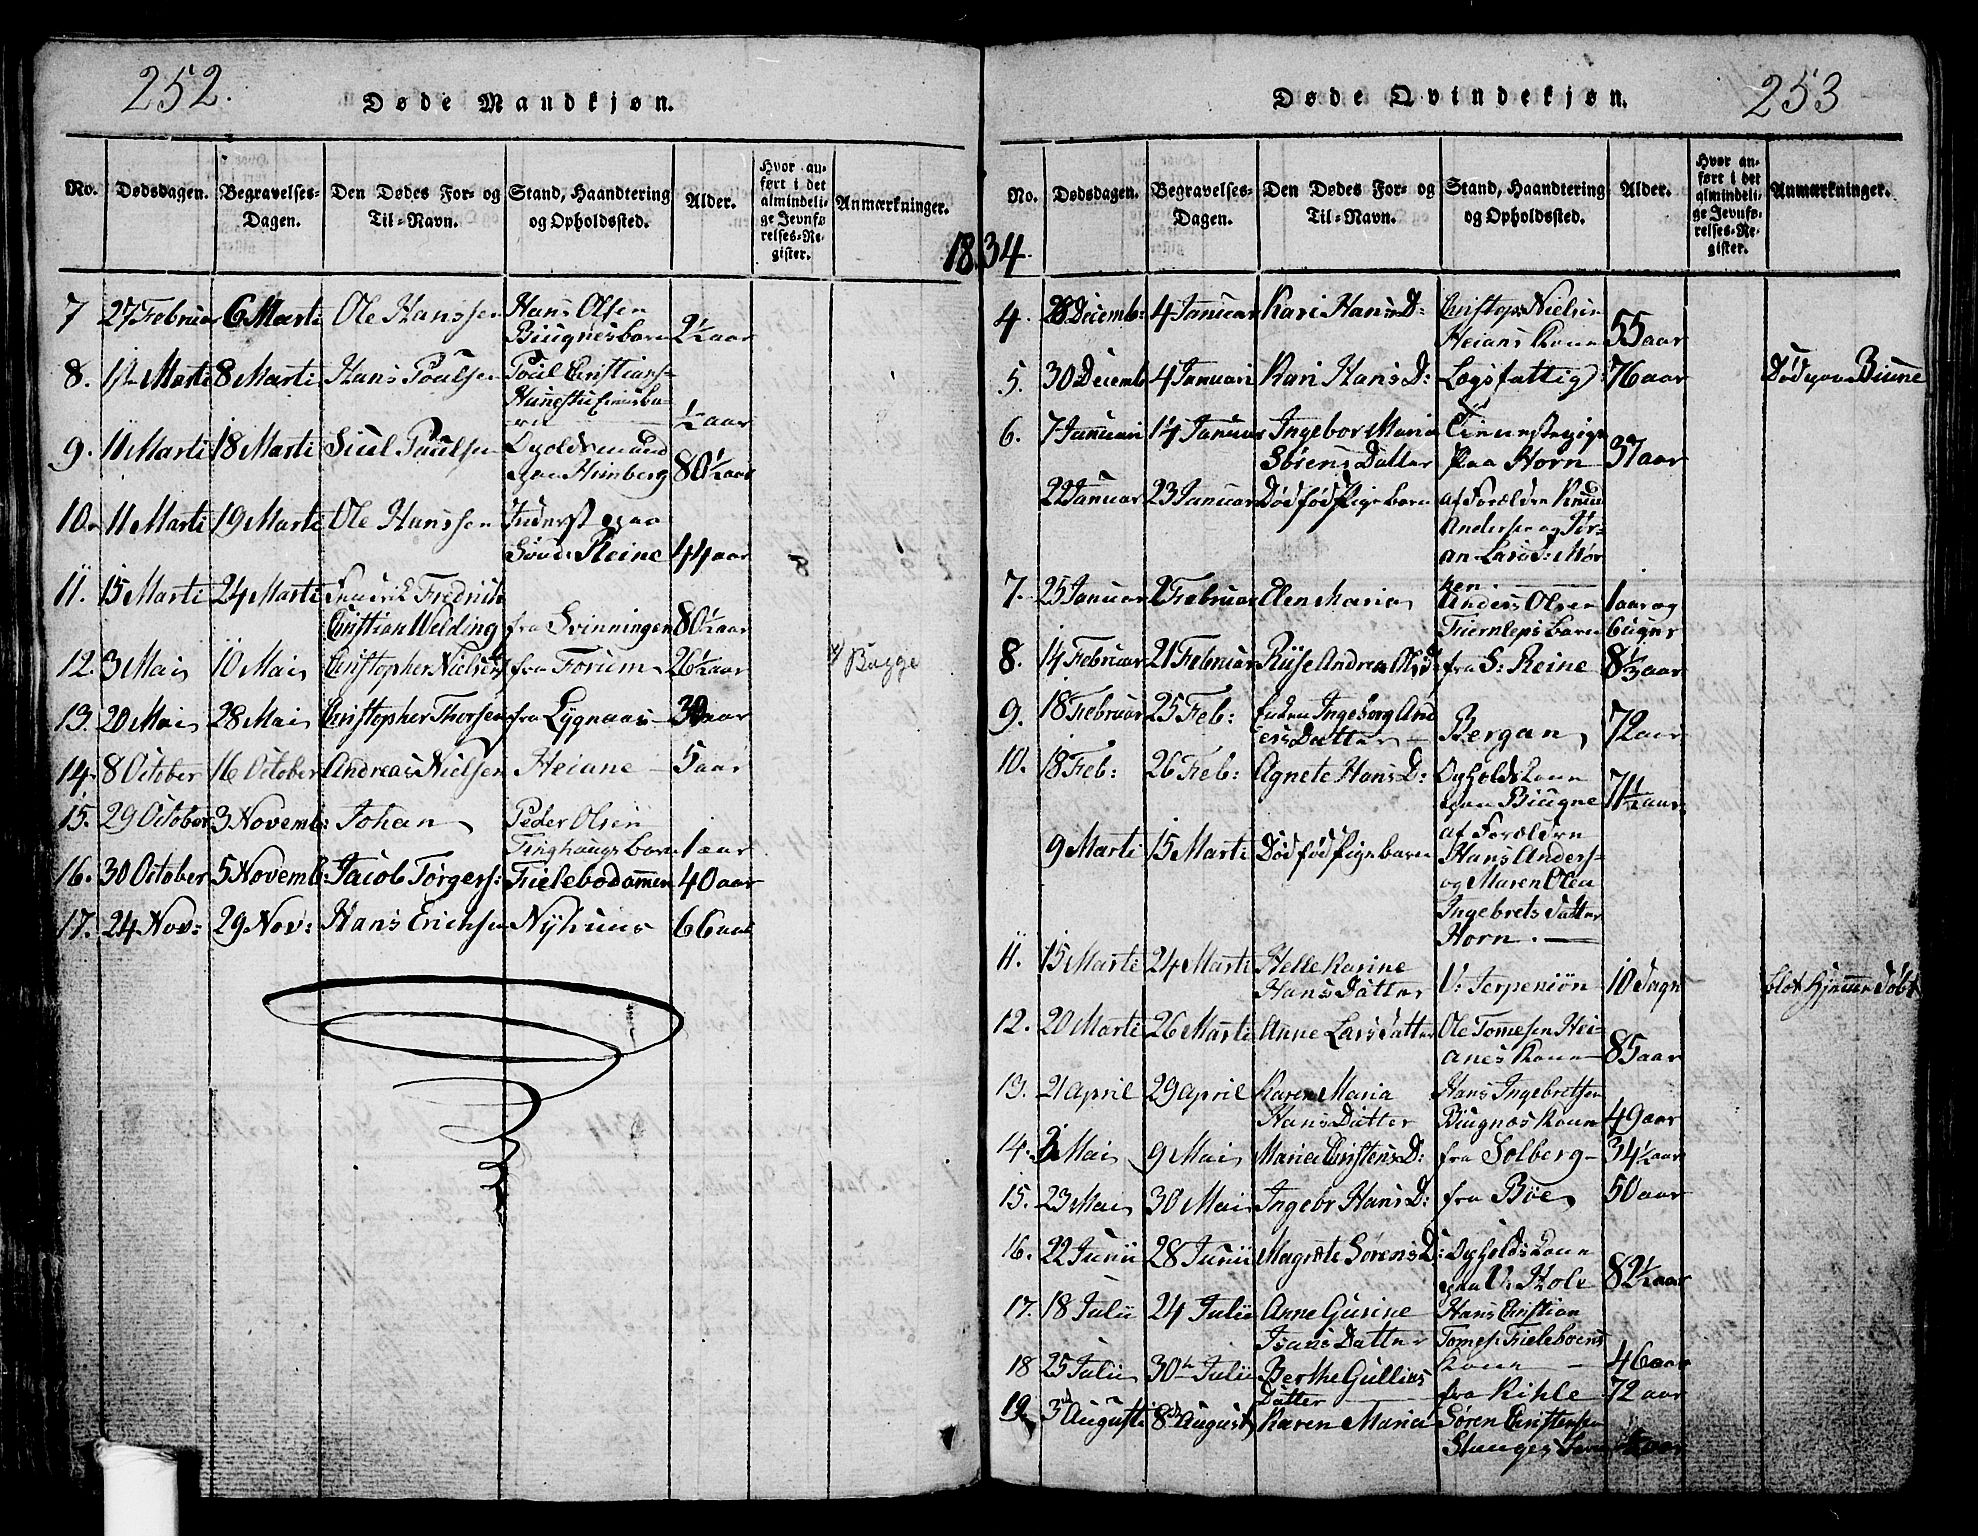 252.
Døde Mandkjøn.
No.
Dødsdagen.
Begravelses-
Dagen.
Den Dødes For- og
Til-Navn.
Stand, Haandtering
og Opholdssted.
Alder.
Hvor an-
ført i det
almindeli-
ge Jevnfø-
relses-Re-
gister.
Anmærkninger.
1834
7 27 Februar 6 Marti Ole Hanssen Hans Olsen
Biugnesbarn 2½ aar
8. Marti 8 Marti Hans Poulsen Poul Christians-
½ aar
9. 11 Marti 18 Marti Poulsen Opholdsmand
paa Himberg 80½ aar
10. 11 Marti 19 Marti Ole Hanssen Inderst paa
Sønd: Reine 44 aar
11. 15 Marti 24 Marti Fredrik
Christian Welding fra Svinningen 80½ aar
12. 3 Mai 10 Mai Christopher Nielsen fra Forum 26½ aar Bagge
13. 20 Mai 28 Mai Christopher Thorsen fra Lygnaas aar
14. 8 October 16 October Andreas Nielsen Heiane 5 aar
15. 29 October 3 Novemb: Johan Peder Olsen
Tinghaugs barn 1 aar
16. 30 October 5 Novemb: Jacob Törgers: Trielebodammen 40 aar
17. 24 Nov: 29 Nov: Hans Erichsen Nyhuus 66 aar
253
Døde Qvindekjøn.
No.
Dødsdagen.
Begravelses-
Dagen.
Den Dødes For- og
Til-Navn.
Stand, Haandtering
og Opholdssted.
Alder.
Hvor an-
ført i det
almindeli-
ge Jevnfø-
relses-Re-
gister.
Anmærkninger.
4. 28 Decemb: 4 Januar Kari Hans D: Christoph Nielsen
Heians Kone 55 aar
5. 30 Decemb 4 Januari Kari Hans D: Lægsfattig 76 aar Død paa Biune
6. 7 Januari 14 Januar Ingebor Maria Tienestepige
Sörens Datter Paa Horn 37 aar
22 Januar 23 Januar Dødfød Pigebarn af Forældre Knud
Andersen og Jør-
an Larsd: Mör
ken.
7. 25 Januar 2 Februar Elen Maria Anders Olsen 1 aar og
Tiernleps barn 6 uger
8. 14 Februar 21 Februar Andrea fra S: Reine 8⅓ aar
9. 18 Februar 25 Feb: Enken Ingeborg And
ers Datter Bergan 72 aar
10. 18 Feb: 26 Feb: Agnete Hans D: Opholds Kone
paa Biugne 71½ aar
9 Marti 15 Marti Dødfød Pigebarn af Forældre
Hans Anders-
og Maren Olea
Ingebrets Datter
Horn.
11. 15 Marti 24 Marti Helle Karine
Hans Datter V: Terpeniön 10 Dage blot hjemmedöbt
12. 20 Marti 26 Marti Anne Lars Datter Ole Tomesen Hei-
anes Kone 85 aar
13. 21 April 29 April Karen Maria Hans Ingebretsen
Hans Datter Biugnæs Kone 49 aar
14. Mai 9 Mai Maria Christens D: fra Solberg 34½ aar
15. 23 Mai 30 Mai Ingebr Hans D: fra Böe 50 aar
16. 22 Junii 28 Junii Magrete Sörens D: Opholds Kone
paa V: Hole 82½ aar
17. 18 Julii 24 Julii Anne Gurine Hans Christian
Isaas Datter Tomes: Trieleboens
Kone 46 aar
18 25 Julii 30te Julii Berthe Gullies
Datter fra Kihle 72 aar
19. 3d Auguste 8de August Karen Maria Sören Christensen
Stanges aar